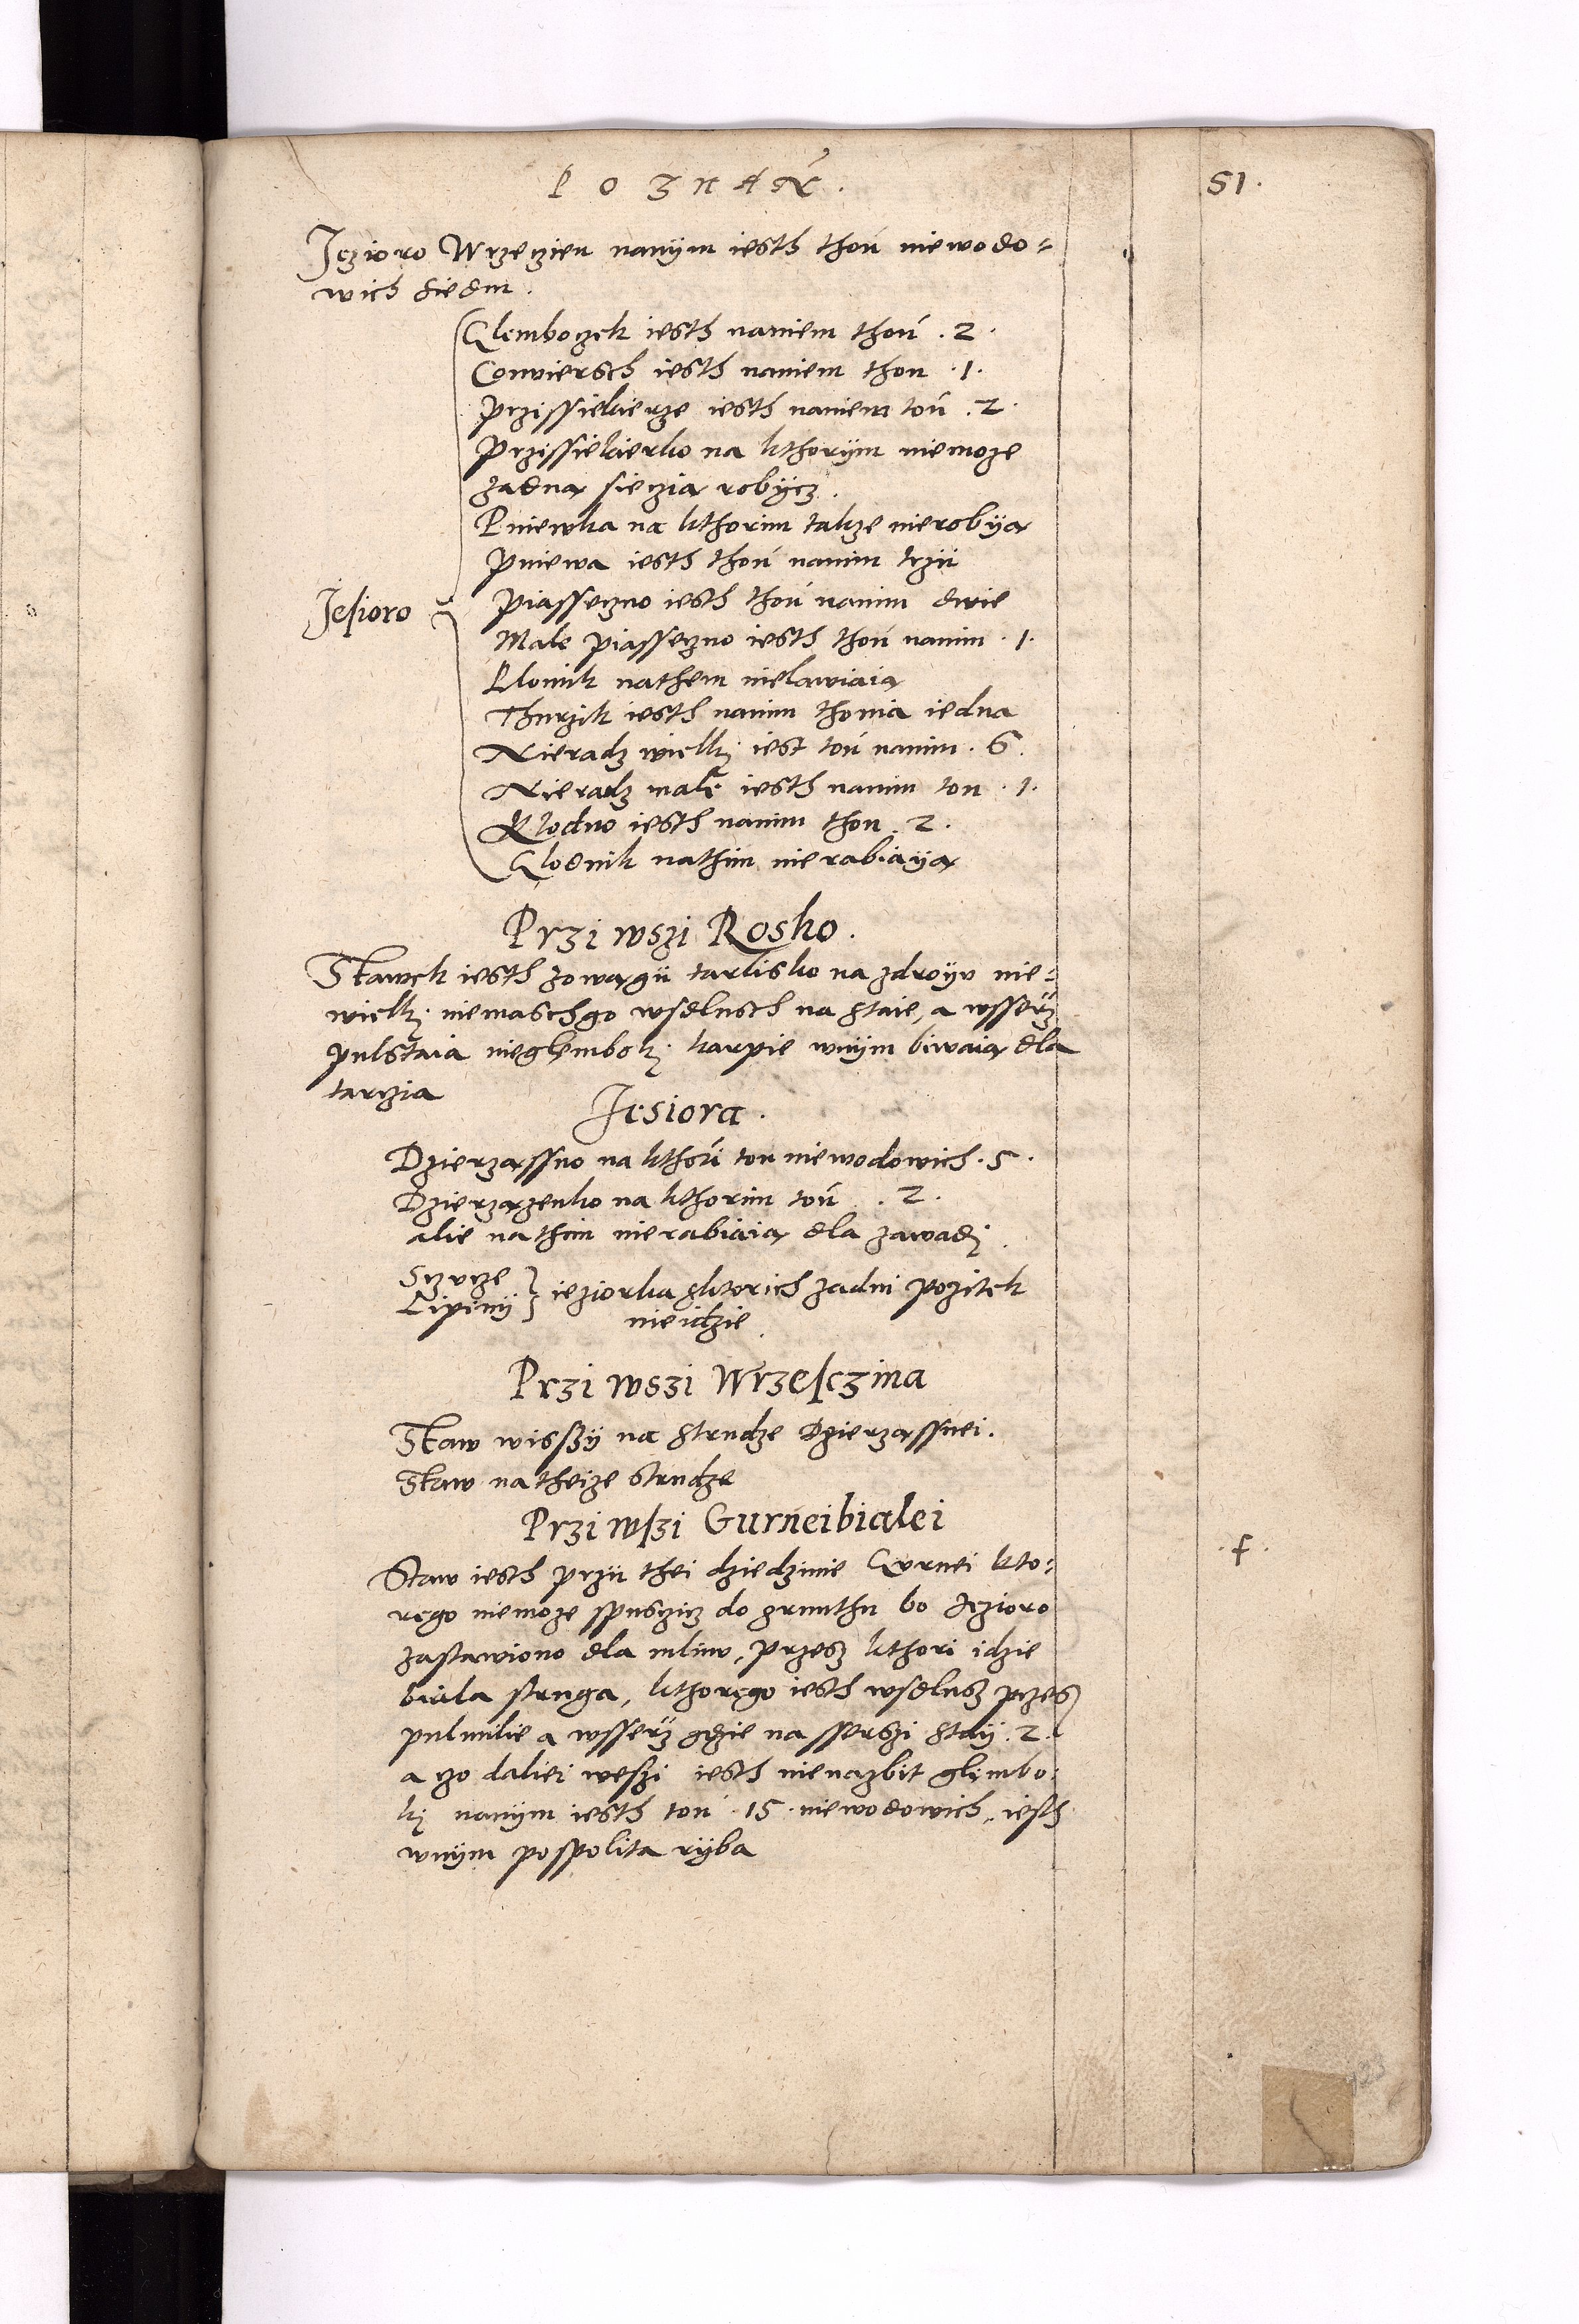 POZNAN. 51.
Jezioro Wrzeczien nanÿm iesth thoń niewodo=
wich siedm.
Glemboczek iesth naniem thoń .2.
Conviersch iesth naniem thon .1.
Przissiekierze iesth naniem toń .2.
Przissiekierko na kthorÿm niemoze
zadna sieczia robÿcz.
Pniewka na kthorim takze nierobÿa
Pniewa iesth thoń nanim trzÿ
Jesioro Piasseczno iesth thoń nanim dwie
Male piasseczno iesth thoń nanim .1.
Klonik nathem nielawiaia
Thurzik iesth nanim thonia iedna
Nieradz wielki iest toń nanim .6.
Nieradz male iesth nanim ton .1.
Klodno iesth nanim thon .2.
Glodnik nathim nierabiaÿa
Przi wszi Rosko.
Stawek iesth zowagÿ tarlisko na zdroÿu nie=
wielki niemaschgo wsdlusch na staie, a wsserz
pulstaia nieglemboki karpie wnÿm biwaia dla
tarczia
Jesiora.
Dzierzassno na kthori ton niewodowich .5.
Dzierzazenko na kthorim toń .2.
alie nathim nierabiaia dla zawadi.
Sczvcze
Lipinÿ } ieziorka zktorich zadni pozitek
nieidzie.
Przi wszi Wrzesczina
Staw wisszÿ na strudze Dzierzassnei.
Staw natheize strudze
Przi wszi Gurneibialei
Staw iesth przÿ thei dziedzinie Gurnei kto= .f.
rego niemoze spusczicz do grunthu bo Jezioro
zastawiono dla mlinw, przesz kthori idzie
biala struga, kthorego iesth wsdlusz przes
pulmilie a wsserz gdzie na sserszi staÿ .2.
a czo daliei weszi iesth nienazbit glembo=
ki nanÿm iesth toń .15. niewodowich, iesth
wnÿm pospolita rÿba